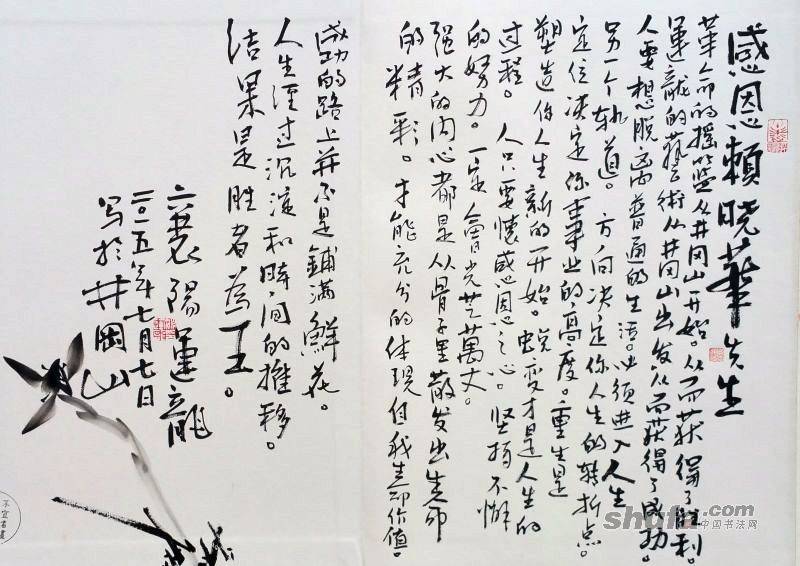 感恩賴曉華先生
革命的摇篮从井冈山开始。从而获得了胜利。
運龍的藝術从井冈山出发从而获得了成功。
人要想脱离普通的生活。必须进入人生
另一个轨道。方向决定你人生的转折点。
定位决定你事业的高度。重生是
塑造你人生新的开始。蜕变才是人生的
过程。人只要懷感恩之心。坚持不懈
的努力。一定會光芒萬丈。
强大的内心都是从骨子里散发出生命
的精彩。才能充分的体现自我生命价值。
成功的路上并不是鋪满鮮花。
人生经过沉淀和時间的推移。
结果是胜者為王。
陽運龍
二〇一五年七月七日
写於井岡山
shufa.com
中国书法网